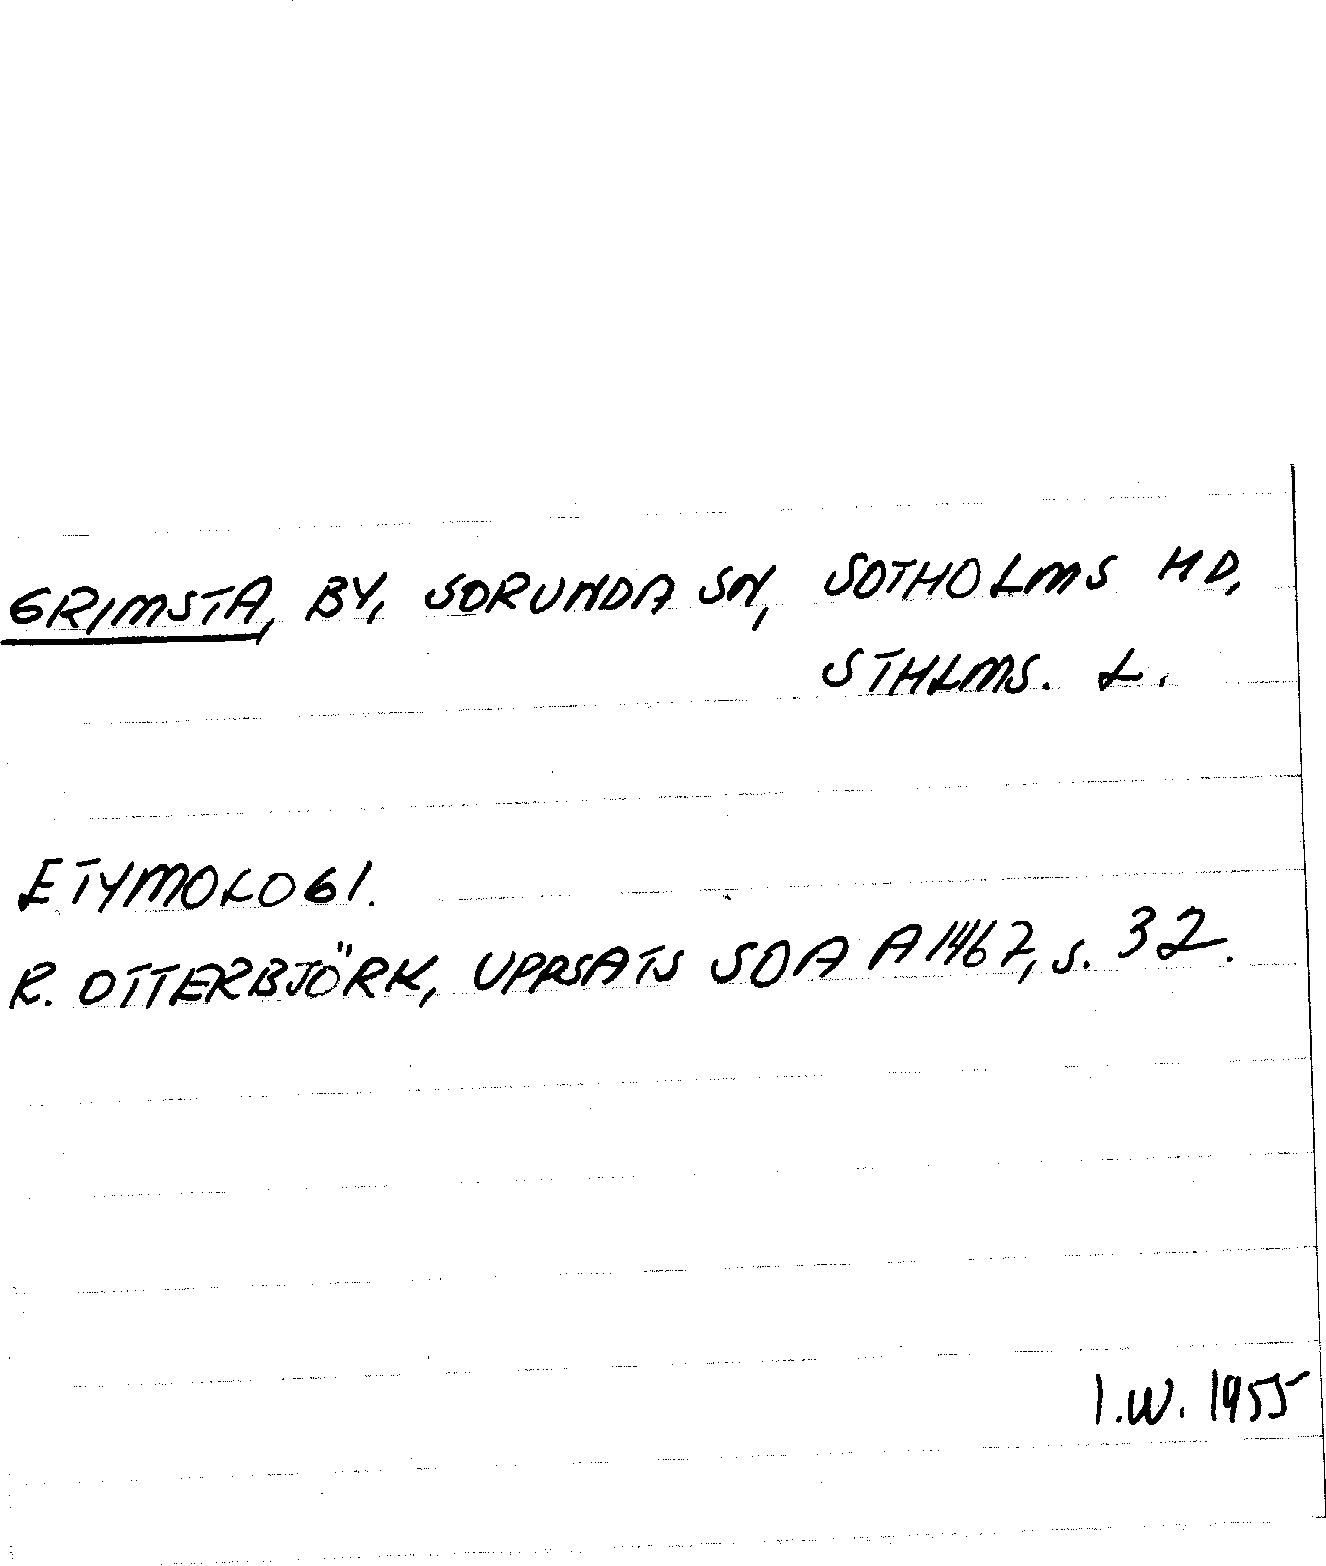 GRIMSTA, BY, SORUNDA SN, SOTHOLMS HD,
STHLMS. L.
ETYMOLOGI.
R. OTTERBJÖRK, UPPSATS SOA A 1467, s. 32.
I.W. 1955